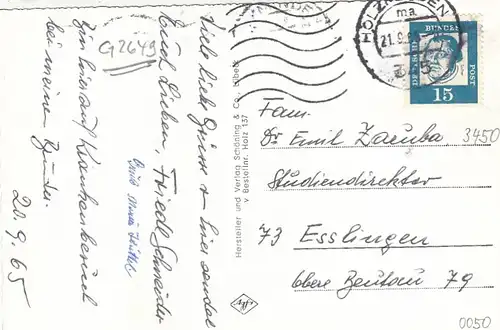 G2649
Viele liebe Grüsse + Euer sendet
Euch Lieben, Friedl Schneider
Zur Zeit auf Krankenbesuch
bei meinem Bruder.
20.9.65
Hersteller und Verlag Schöning & Co., Lübeck
Bestellnr. Holz 157
HOLZMINDEN
ma
21.9.
DEUTSCHE BUNDESPOST
15
Fam.
Dr. Emil Zaruba
3450
Studiendirektor
73 Esslingen
Obere Beutau 79
0050